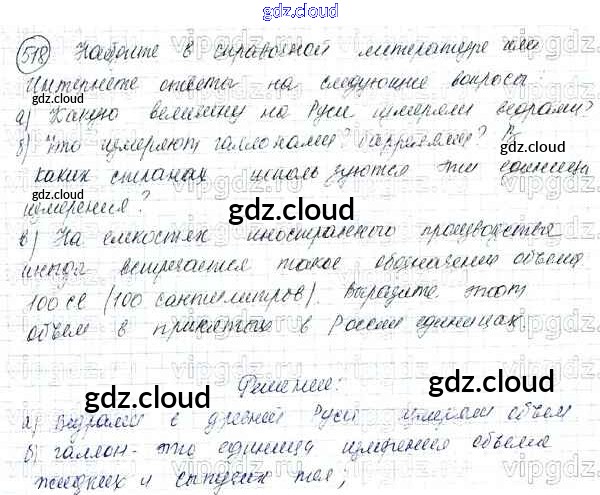 gdz.cloud
518 Найдите в справочной литературе или
Интернете ответы на следующие вопросы:
gdz.cloud gdz.cloud
а) Какую величину на Руси измеряли ведрами?
б) Что измеряют галлонами? баррелями? В
каких странах используются эти единицы
gdz.cloud gdz.cloud
измерения?
gdz.cloud
в) На емкостях иностранного производства
иногда встречается такое обозначение объема
100 cl (100 сантилитров). Выразите этот
объем в принятых в России единицах
Решение:
gdz.cloud gdz.cloud
а) Ведрами в древней Руси измеряли объем
б) галлон - это единица измерения объема
жидких и сыпучих тел;